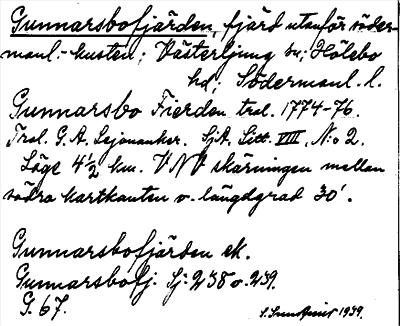 Gunnarsbofjärden, fjärd utanför söder-
manl.-kusten; Västerljung sn; Hölebo
hd; Södermanl. l.
Gunnarsbo Fierden trol. 1774-76.
Trol. G. A. Lejonanker. SjA. Litt. VIII, N:o 2.
Läge 4½ km. VNV skärningen mellan
södra kartkanten o. längdgrad 30'.
Gunnarsbofjärden ek.
Gunnarsbofj. Sj: 238 o. 239.
G. 67.
1939.